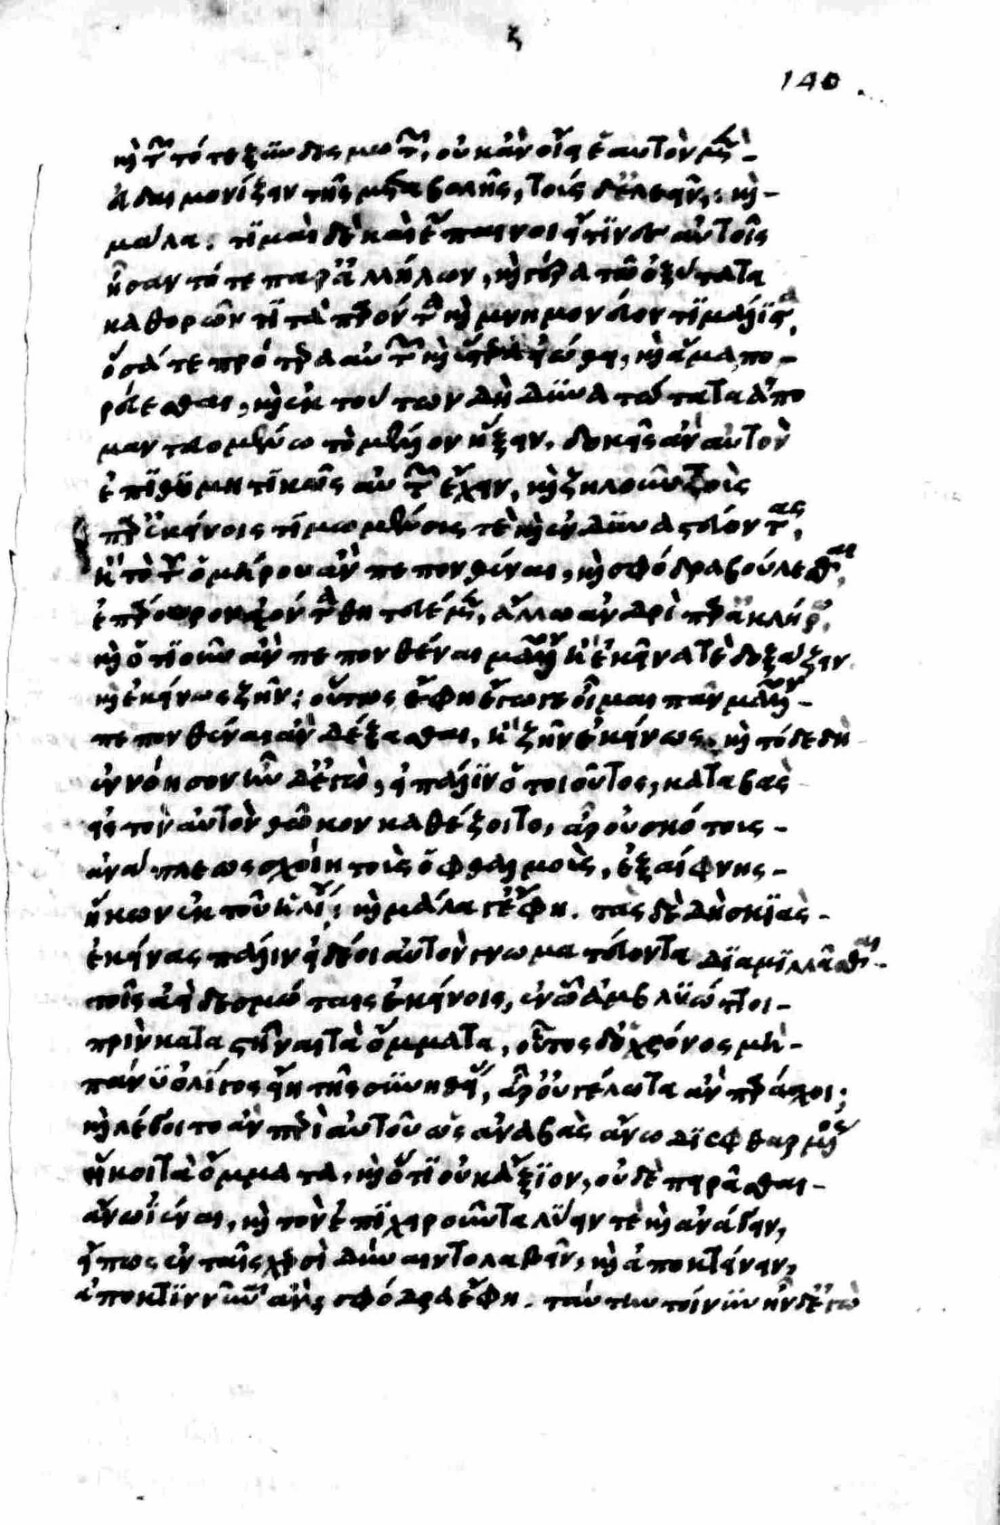 ζ
140
καὶ τῶν τότε ξυνδεσμωτῶν, οὐκ ἂν οἴει ἑαυτὸν μὲν
εὐδαιμονίζειν τῆς μεταβολῆς, τοὺς δὲ ἐλεεῖν; καὶ
μάλα. τιμαὶ δὲ καὶ ἔπαινοι εἴ τινες αὐτοῖς
ἦσαν τότε παρ' ἀλλήλων, καὶ γέρα τῷ ὀξύτατα
καθορῶντι τὰ παριόντα καὶ μνημονεύοντι μάλιστα,
ὅσά τε πρότερα αὐτῶν καὶ ὕστερα εἰώθει, καὶ ἅμα πο-
ρεύεσθαι, καὶ ἐκ τούτων δὴ δυνατώτατα ἀπο
μαντευομένῳ τὸ μέλλον ἥξειν, δοκεῖς ἂν αὐτὸν
ἐπιθυμητικῶς αὐτῶν ἔχειν, καὶ ζηλοῦν τοὺς
παρ' ἐκείνοις τιμωμένους τε καὶ ἐνδυναστεύοντας,
ἢ τὸ τοῦ ὁμήρου ἂν πεπονθέναι, καὶ σφόδρα βούλεσθαι,
ἐπάρουρον ἐόντα θητευέμεν, ἄλλῳ ἀνδρὶ παρ' ἀκλήρῳ,
καὶ ὁτιοῦν ἂν πεπονθέναι μᾶλλον ἢ ἐκεῖνά τε δοξάζειν
καὶ ἐκείνως ζῆν; οὕτως ἔφη ἔγωγε οἶμαι πᾶν μᾶλλον
πεπονθέναι ἂν δέξασθαι, ἢ ζῆν ἐκείνως. καὶ τόδε δὴ
ἐννόησον ἦν δ' ἐγώ, εἰ πάλιν ὁ τοιοῦτος, καταβὰς
εἰς τὸν αὐτὸν θῶκον καθέζοιτο, ἆρ' οὐ σκότους
ἀνάπλεως σχοίη τοὺς ὀφθαλμοὺς, ἐξαίφνης
ἥκων ἐκ τοῦ ἡλίου; καὶ μάλα γ' ἔφη. τὰς δὲ δὴ σκιὰς
ἐκείνας πάλιν εἰ δέοι αὐτὸν γνωματεύοντα διαμιλλᾶσθαι
τοῖς ἀεὶ δεσμώταις ἐκείνοις, ἐν ᾧ ἀμβλυώττοι
πρὶν καταστῆναι τὰ ὄμματα, οὗτος δ' ὁ χρόνος μὴ
πάνυ ὀλίγος εἴη τῆς συνηθείας, ἆρ' οὐ γέλωτα ἂν παράσχοι;
καὶ λέγοιτο ἂν περὶ αὐτοῦ ὡς ἀναβὰς ἄνω διεφθαρμένος
ἥκοι τὰ ὄμματα, καὶ ὅτι οὐκ ἄξιον, οὐδὲ πειρᾶσθαι
ἄνω ἰέναι, καὶ τὸν ἐπιχειροῦντα λύειν τε καὶ ἀνάγειν,
εἴ πως ἐν ταῖς χερσὶ δύναιντο λαβεῖν, καὶ ἀποκτείνειν,
ἀποκτιννύναι ἄν; σφόδρα ἔφη. ταύτην τοίνυν ἦν δ' ἐγὼ